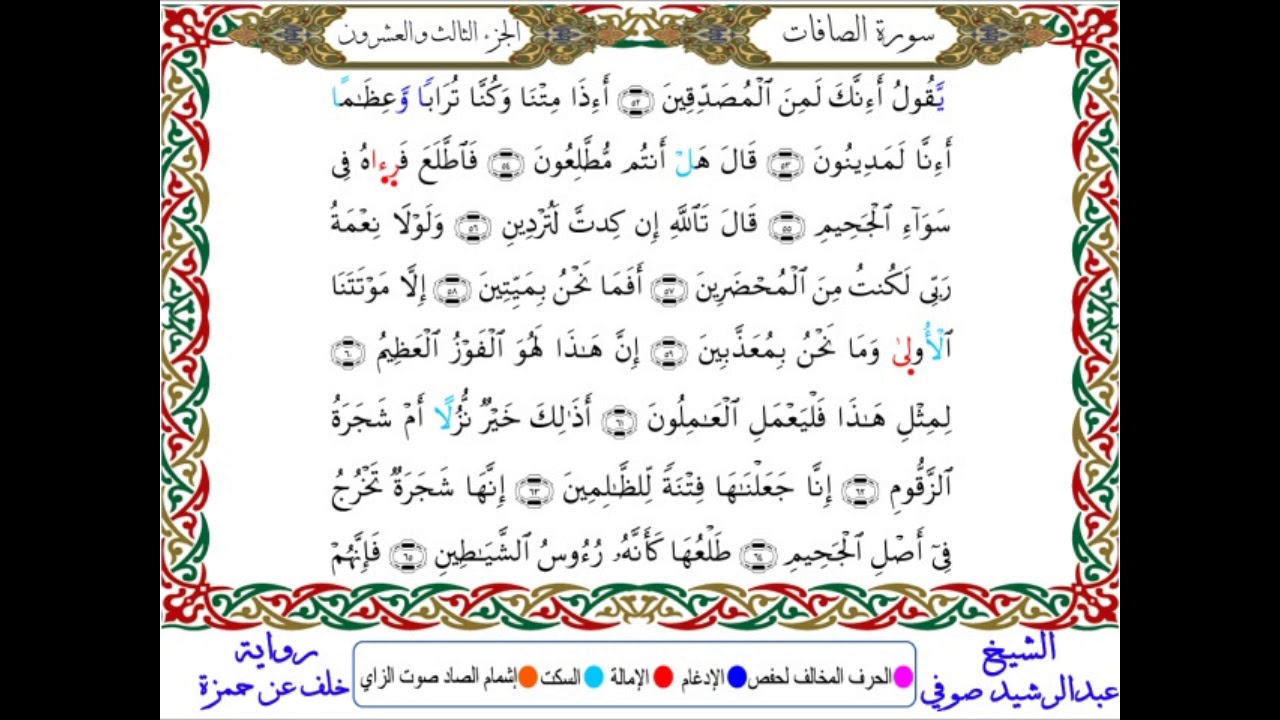 سورة الصافات
الجزء الثالث والعشرون
يَّقُولُ أَءِنَّكَ لَمِنَ ٱلْمُصَدِّقِينَ ٥٢ أَءِذَا مِتْنَا وَكُنَّا تُرَابًا وَّعِظَٰمًا
أَءِنَّا لَمَدِينُونَ ٥٣ قَالَ هَلْ أَنتُم مُّطَّلِعُونَ ٥٤ فَٱطَّلَعَ فَرِءاهُ فِى
سَوَآءِ ٱلْجَحِيمِ ٥٥ قَالَ تَٱللَّهِ إِن كِدتَّ لَتُرْدِينِ ٥٦ وَلَوْلَا نِعْمَةُ
رَبِّى لَكُنتُ مِنَ ٱلْمُحْضَرِينَ ٥٧ أَفَمَا نَحْنُ بِمَيِّتِينَ ٥٨ إِلَّا مَوْتَتَنَا
ٱلْأُولِىٰ وَمَا نَحْنُ بِمُعَذَّبِينَ ٥٩ إِنَّ هَٰذَا لَهُوَ ٱلْفَوْزُ ٱلْعَظِيمُ ٦٠
لِمِثْلِ هَٰذَا فَلْيَعْمَلِ ٱلْعَٰمِلُونَ ٦١ أَذَٰلِكَ خَيْرٌ نُّزُلًا أَمْ شَجَرَةُ
ٱلزَّقُّومِ ٦٢ إِنَّا جَعَلْنَٰهَا فِتْنَةً لِّلظَّٰلِمِينَ ٦٣ إِنَّهَا شَجَرَةٌ تَخْرُجُ
فِىٓ أَصْلِ ٱلْجَحِيمِ ٦٤ طَلْعُهَا كَأَنَّهُۥ رُءُوسُ ٱلشَّيَٰطِينِ ٦٥ فَإِنَّهُمْ
الشيخ
عبدالرشيد صوفي
الحرف المخالف لحفص الإدغام الإمالة السكت إشمام الصاد صوت الزاي
رواية
خلف عن حمزة